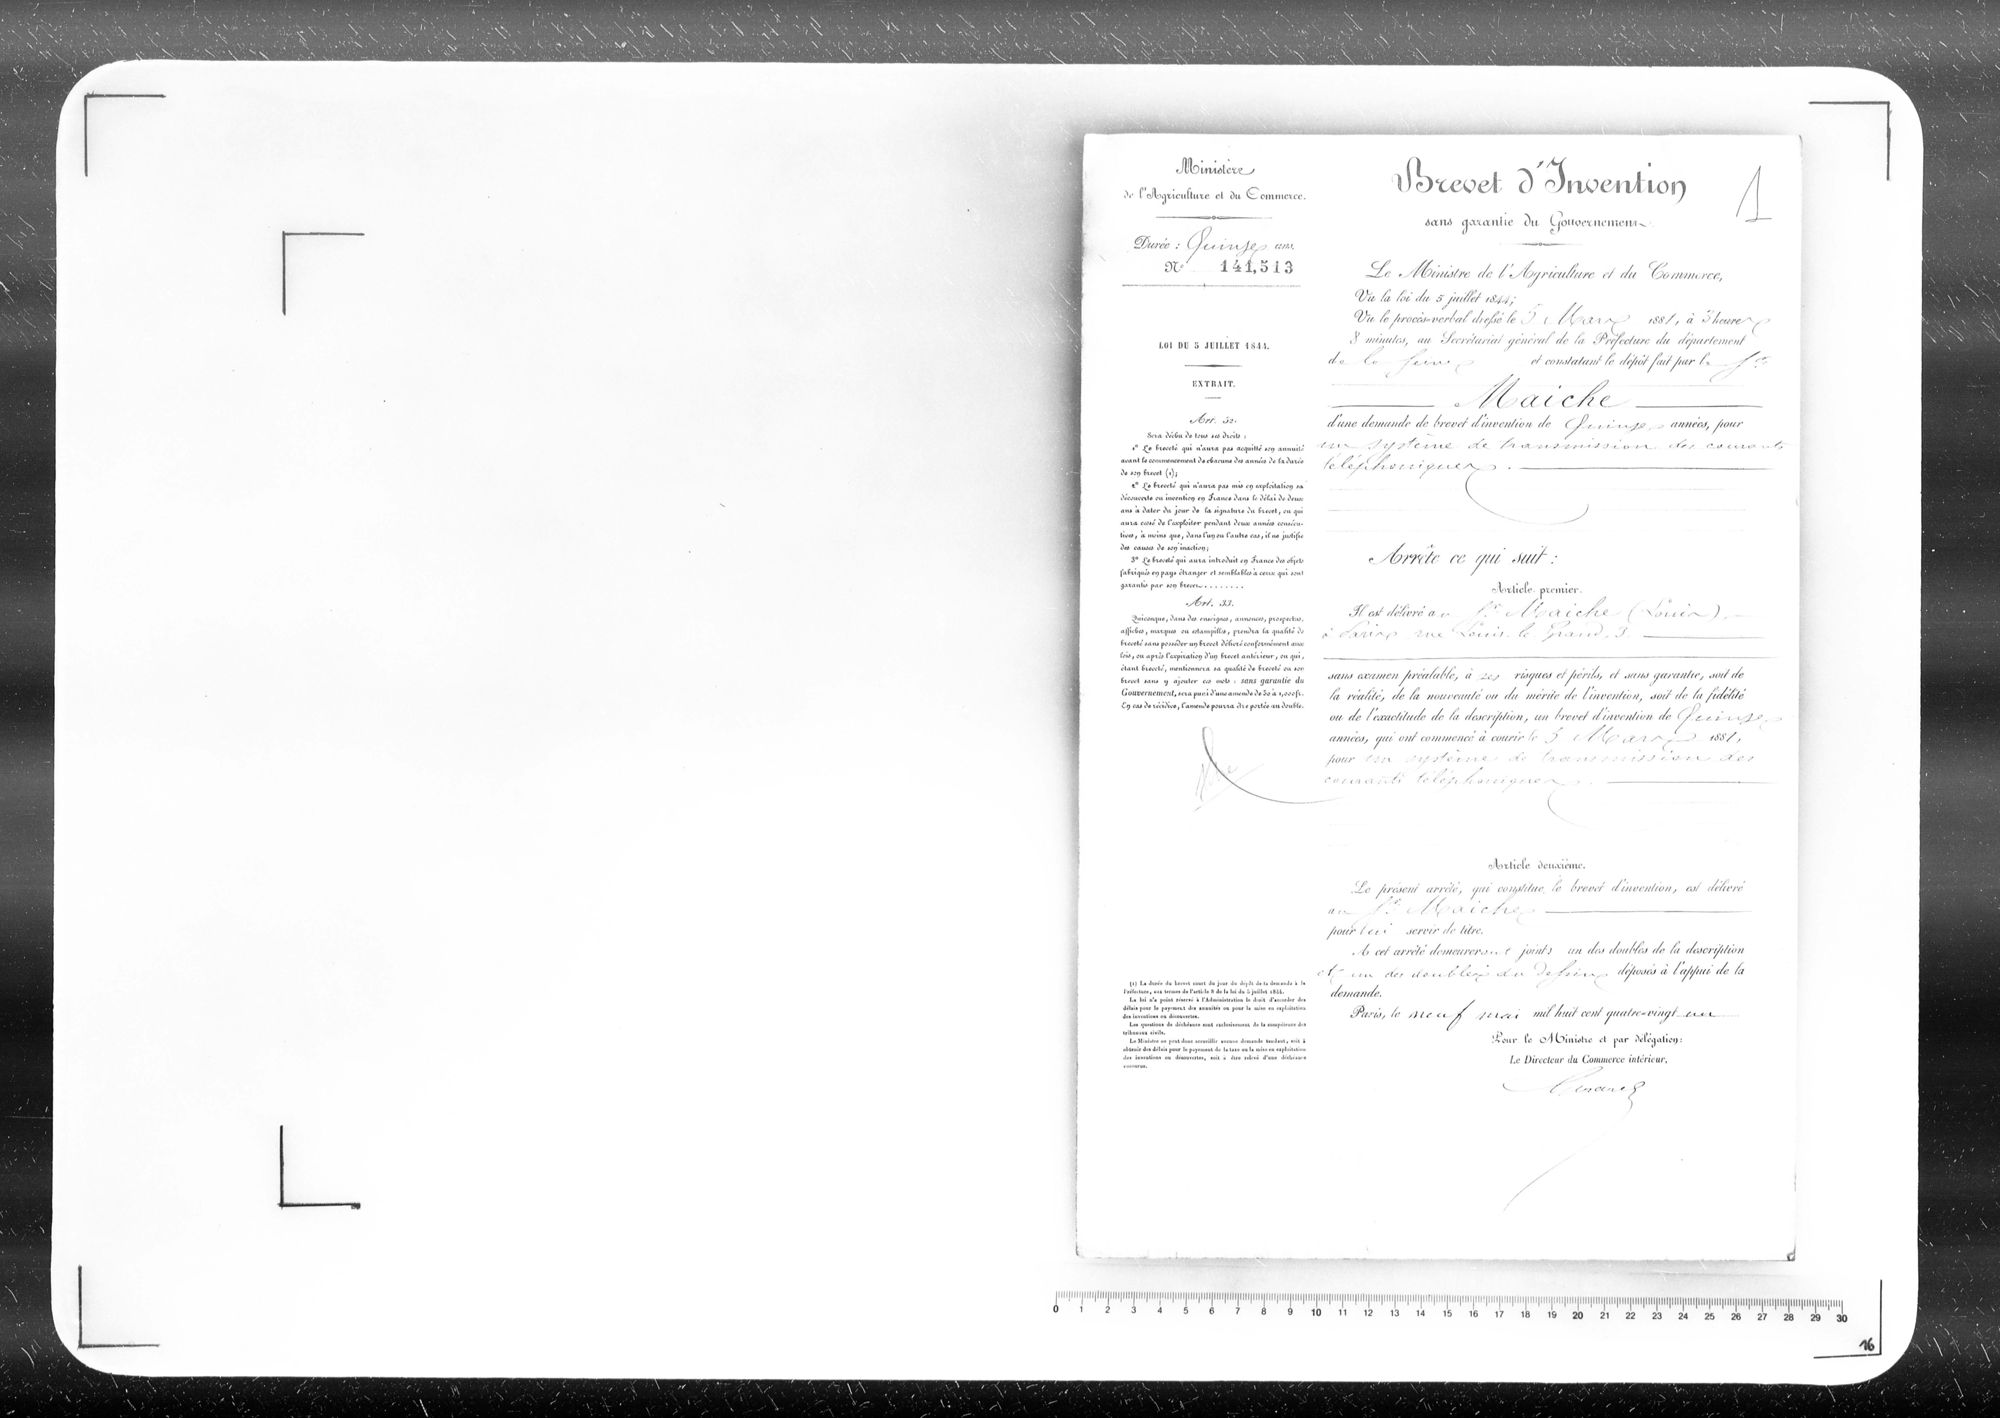 Ministère
de l'Agriculture et du Commerce.
Durée : Quinze ans.
N° 141,513
LOI DU 5 JUILLET 1844.
EXTRAIT.
Art. 32.
Sera déchu de tous ses droits :
1° Le breveté qui n'aura pas acquitté son annuité
avant le commencement de chacune des années de la durée
de son brevet (1);
2° Le breveté qui n'aura pas mis en exploitation sa
découverte ou invention en France dans le délai de deux
ans à dater du jour de la signature du brevet, ou qui
aura cessé de l'exploiter pendant deux années consécu-
tives, à moins que, dans l'un ou l'autre cas, il ne justifie
des causes de son inaction;
3° Le breveté qui aura introduit en France des objets
fabriqués en pays étranger et semblables à ceux qui sont
garantis par son brevet........
Art. 33.
Quiconque, dans des enseignes, annonces, prospectus,
affiches, marques ou estampilles, prendra la qualité de
breveté sans posséder un brevet délivré conformément aux
lois, ou après l'expiration d'un brevet antérieur, ou qui,
étant breveté, mentionnera sa qualité de breveté ou son
brevet sans y ajouter ces mots : sans garantie du
Gouvernement, sera puni d'une amende de 50 à 1,000 fr.
En cas de récidive, l'amende pourra être portée au double.
(1) La durée du brevet court du jour du dépôt de la demande à la
Préfecture, aux termes de l'article 8 de la loi du 5 juillet 1844.
La loi n'a point réservé à l'Administration le droit d'accorder des
délais pour le payement des annuités ou pour la mise en exploitation
des inventions ou découvertes.
Les questions de déchéance sont exclusivement de la compétence des
tribunaux civils.
Le Ministre ne peut donc accueillir aucune demande tendant, soit à
obtenir des délais pour le payement de la taxe ou la mise en exploitation
des inventions ou découvertes, soit à être relevé d'une déchéance
encourue.
Brevet d'Invention
1
sans garantie du Gouvernement.
Le Ministre de l'Agriculture et du Commerce,
Vu la loi du 5 juillet 1844;
Vu le procès-verbal dressé le 5 Mars 1881, à 3 heures
8 minutes, au Secrétariat général de la Préfecture du département
de la Seine et constatant le dépôt fait par le Sr
Maiche
d'une demande de brevet d'invention de Quinze années, pour
un système de transmission des courants
téléphoniques.
Arrête ce qui suit :
Article premier.
Il est délivré au Sr Maiche (Louis),
à Paris rue Louis le Grand, 3
sans examen préalable, à ses risques et périls, et sans garantie, soit de
la réalité, de la nouveauté ou du mérite de l'invention, soit de la fidélité
ou de l'exactitude de la description, un brevet d'invention de Quinze
années, qui ont commencé à courir le 5 Mars 1881,
pour un système de transmission des
courants téléphoniques.
Article deuxième.
Le présent arrêté, qui constitue le brevet d'invention, est délivré
au Sr Maiche
pour lui servir de titre.
A cet arrêté demeureront joints un des doubles de la description
et un des doubles du dessin déposés à l'appui de la
demande.
Paris, le neuf mai mil huit cent quatre-vingt un
Pour le Ministre et par délégation:
Le Directeur du Commerce intérieur,
0 1 2 3 4 5 6 7 8 9 10 11 12 13 14 15 16 17 18 19 20 21 22 23 24 25 26 27 28 29 30
16